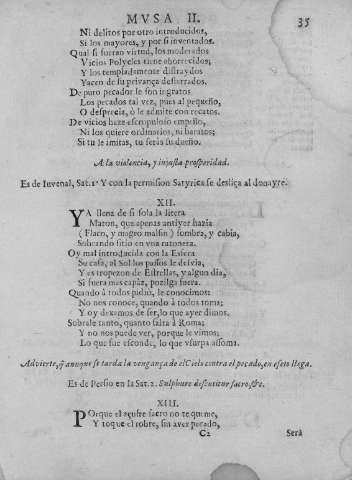 MVSA II.
35
Ni delitos por otro introducidos,
Si los mayores, y por si inventados.
Qual si fueran virtud, los moderados
Vicios Polycles tiene aborrecidos;
Y los templadamente distraydos
Yacen de su privança desterrados.
De puro pecador le son ingratos
Los pecados tal vez, pues al pequeño,
O desprecia, ò le admite con recatos.
De vicios haze escrupuloso empeño,
Ni los quiere ordinarios, ni baratos;
Si tu le imitas, tu seràs su dueño.
A la violencia, y injusta prosperidad.
Es de Iuvenal, Sat. 1. Y con la permision Satyrica se desliça al donayre.
XII.
YA llena de si sola la litera
Maton, que apenas antiyer hazia
(Flaco, y magro malsin) sombra, y cabia,
Sobrando sitio en vna ratonera.
Oy mal introducida con la Esfera
Su casa, al Sol los passos le desvia,
Y es tropezon de Estrellas, y algun dia,
Si fuera mas capàz, pozilga fuera.
Quando à todos pidiò, le conocimos:
No nos conoce, quando à todos toma;
Y oy dexamos de ser, lo que ayer dimos.
Sobrale tanto, quanto falta à Roma;
Y no nos puede ver, porque le vimos:
Lo que fue esconde, lo que vsurpa assoma.
Advierte, q̃ aunque se tarda la vengança de el Cielo contra el pecado, en efeto llega.
Es de Persio en la Sat. 2. Sulphure discutitur sacro, &c.
XIII.
POrque el açufre sacro no te queme,
Y toque el robre, sin aver pecado,
C2
Serà